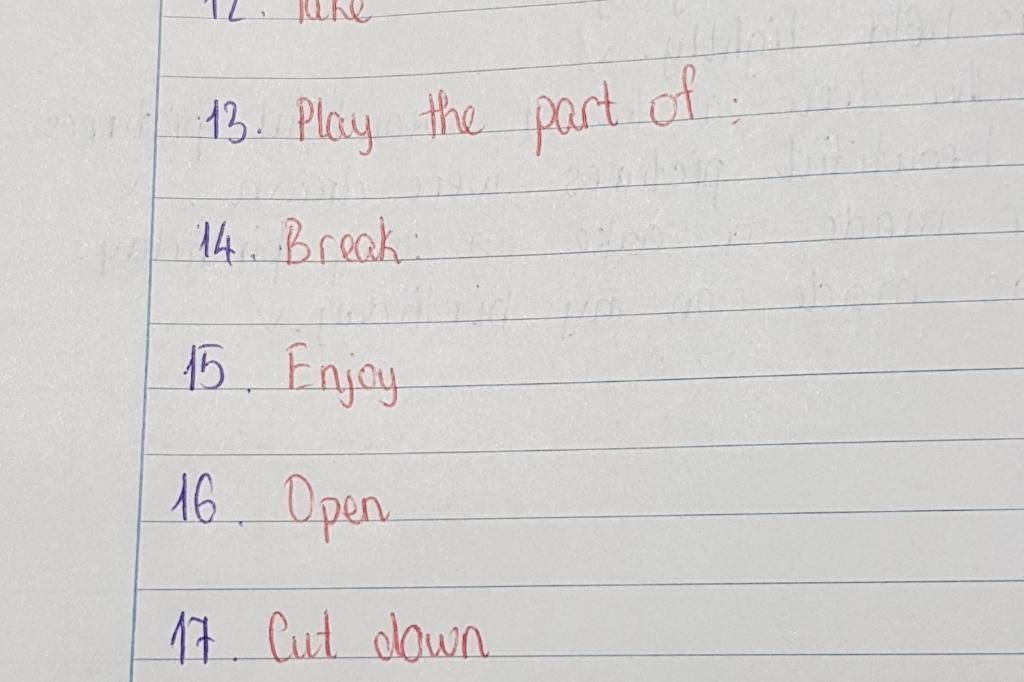 12. Take
13. Play the part of :
14. Break :
15. Enjoy
16. Open
17. Cut down